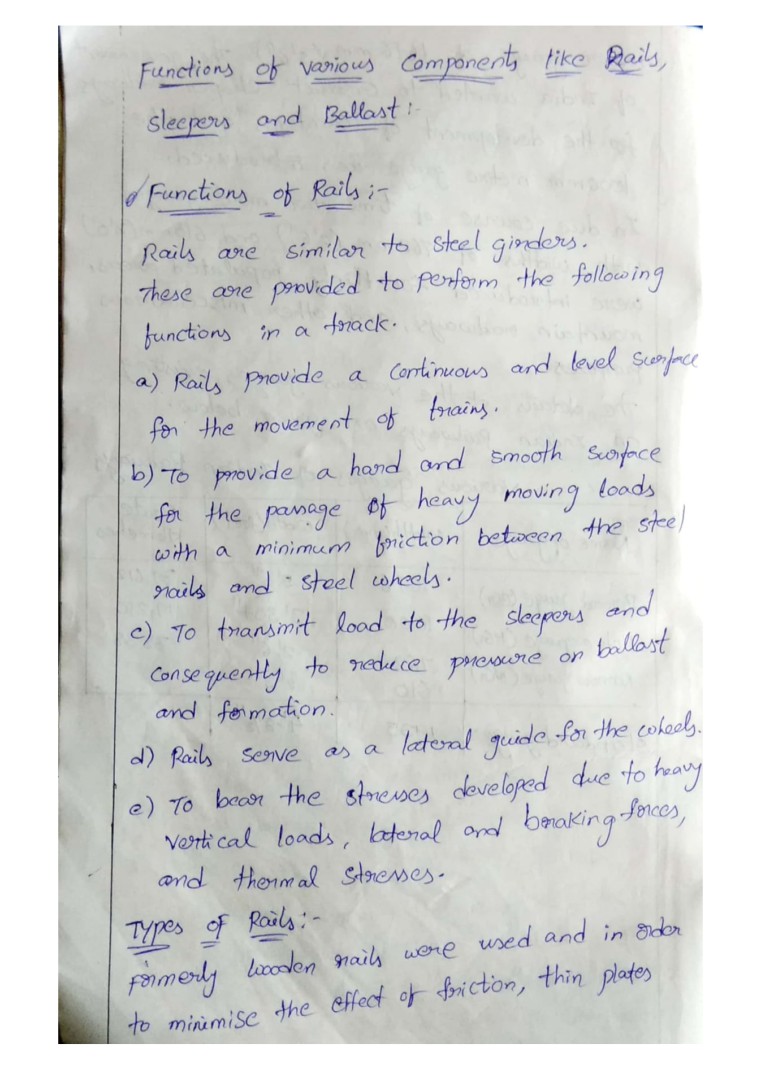 Functions of various Components like Rails,
Sleepers and Ballast :-
Functions of Rails :-
Rails are similar to steel girders.
These are provided to perform the following
functions in a track.
a) Rails provide a continuous and level surface
for the movement of trains.
b) To provide a hard and smooth surface
for the passage of heavy moving loads
with a minimum friction between the steel
rails and steel wheels.
c) To transmit load to the sleepers and
consequently to reduce pressure on ballast
and formation.
d) Rails serve as a lateral guide for the wheels.
e) To bear the stresses developed due to heavy
vertical loads, lateral and braking forces,
and thermal stresses.
Types of Rails :-
Formerly wooden rails were used and in order
to minimise the effect of friction, thin plates